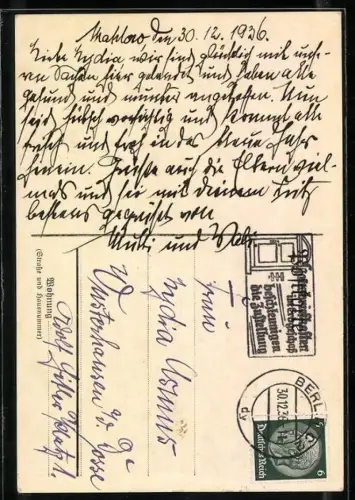 Mahlow den 30.12.1936.
Liebe Lydia, wir sind glücklich mit unse-
ren Sachen hier gelandet und haben alle
gesund und munter angetroffen. Nun
seid hübsch vorsichtig und kommt alle
frisch und froh in das Neue Jahr
hinein. Grüße auch die Eltern viel-
mals und sei mit Deinem Fritz
bestens gegrüßt von
und
Wohnung
(Straße und Hausnummer)
Frau
Lydia
Wusterhausen a/Dosse
Adolf Hitler 1.
Briefkasten
beschleunigen
die Zustellung
BERLIN
30.12.36
Deutsches Reich
6